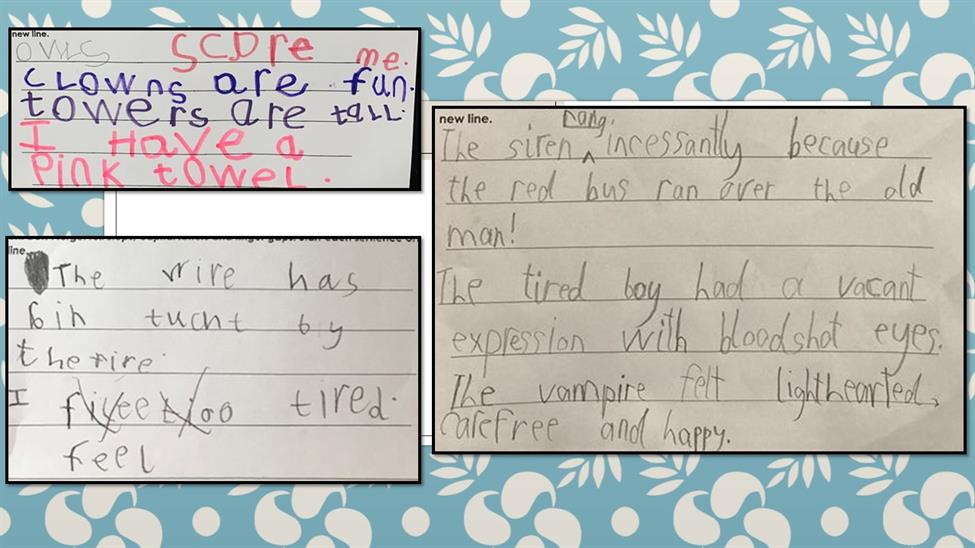 new line.
owls SCare me.
CLOWns are fun.
toweRs are tall.
I Have a
Pink toweL.
line.
The wire has
bin tucht by
the tire.
I tired.
feel
new line.
rang.
The siren ^ incessantly because
the red bus ran over the old
man!
The tired boy had a vacant
expression with bloodshot eyes.
The vampire felt lighthearted,
carefree and happy.